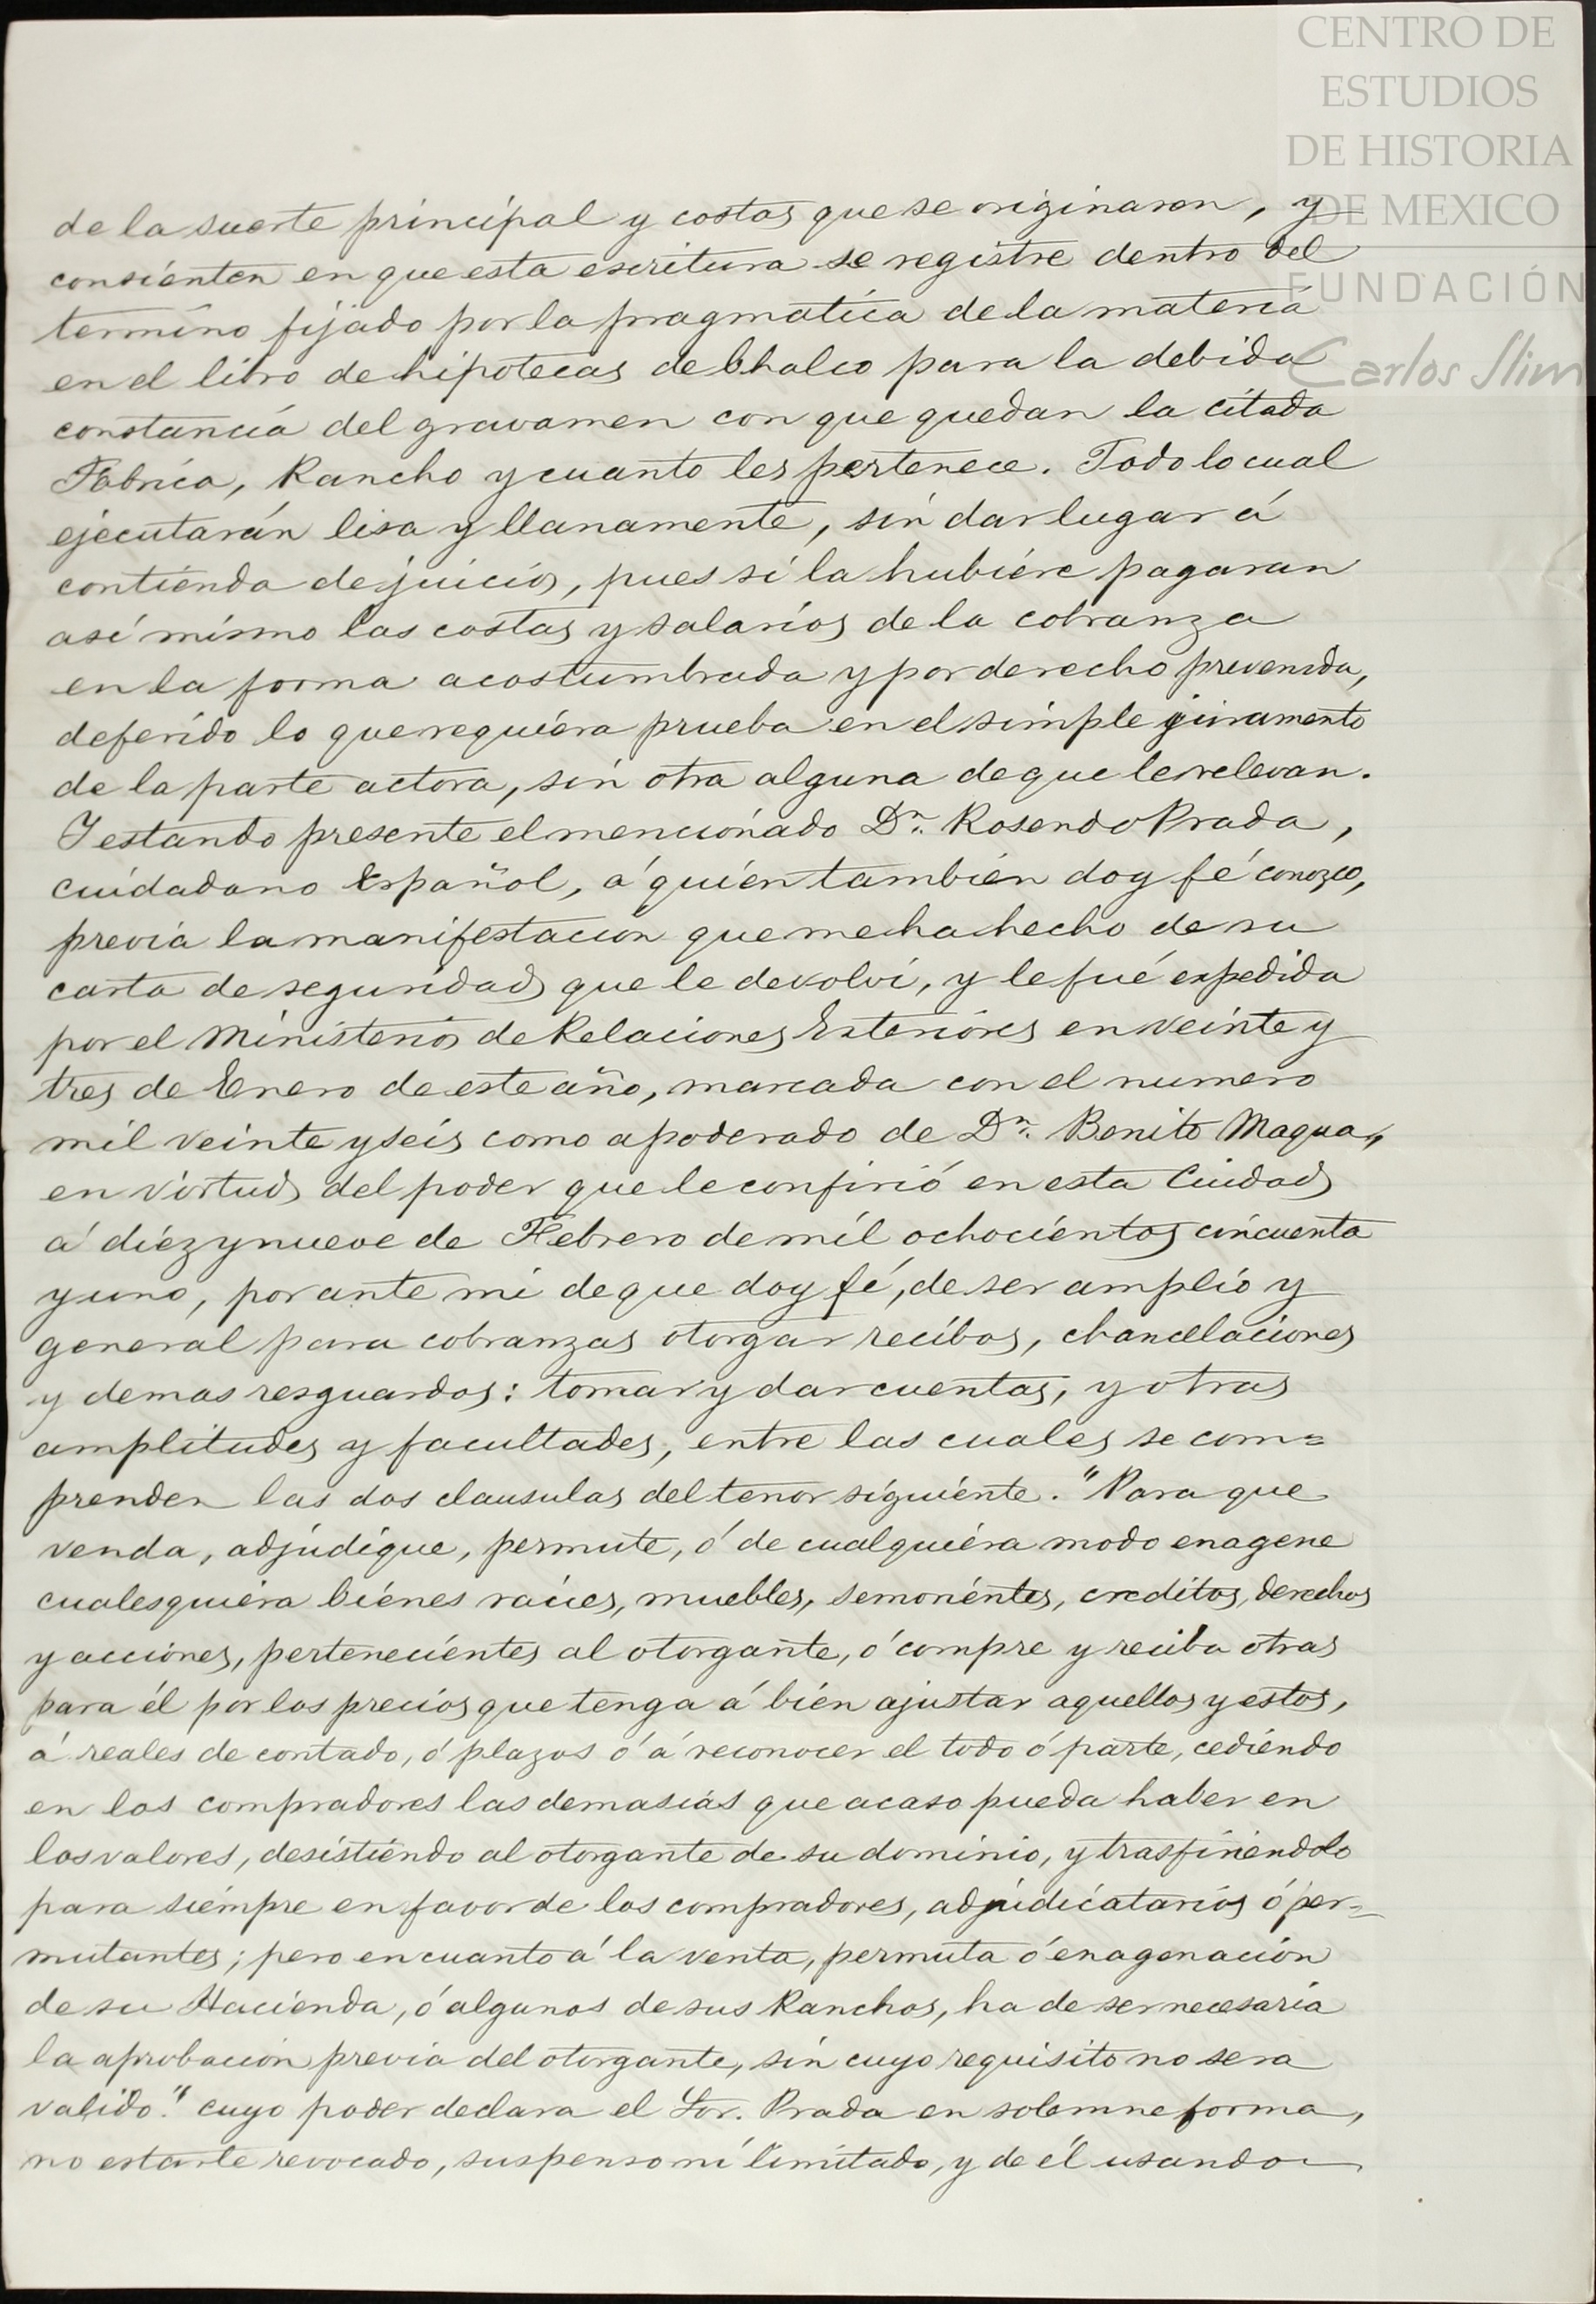 CENTRO DE
ESTUDIOS
DE HISTORIA
DE MEXICO
FUNDACIÓN
Carlos Slim
de la suerte principal y costas que se originaren, y
consienten en que esta escritura se registre dentro del
termino fijado por la pragmatica de la materia
en el libro de hipotecas de Chalco para la debida
constancia del gravamen con que quedan la citada
Fabrica, Rancho y cuanto les pertenece. Todo lo cual
ejecutarán lisa y llanamente, sin dar lugar á
contienda de juicio, pues si la hubiere pagaran
así mismo las costas y salarios de la cobranza
en la forma acostumbrada y por derecho prevenida,
deferido lo que requiera prueba en el simple juramento
de la parte actora, sin otra alguna de que le relevan.
Y estando presente el mencionado Dn. Rosendo Prada,
cuidadano Español, á quien tambien doy fé conozco,
previa la manifestacion que me ha hecho de su
carta de seguridad que le devolví, y le fué expedida
por el Ministerio de Relaciones Exteriores en veinte y
tres de Enero de este año, marcada con el numero
mil veinte y seis como apoderado de Dn. Benito Maqua,
en virtud del poder que le confirió en esta Ciudad
á diez y nueve de Febrero de mil ochocientos cincuenta
y uno, por ante mi de que doy fé, de ser amplio y
general para cobranzas otorgar recibos, chancelaciones
y demas resguardos: tomar y dar cuentas, y otras
amplitudes y facultades, entre las cuales se com=
prenden las dos clausulas del tenor siguiente. "Para que
venda, adjudique, permute, ó de cualquiera modo enagene
cualesquiera bienes raices, muebles, semovientes, creditos, derechos
y acciones, pertenecientes al otorgante, ó compre y reciba otras
para él por los precios que tenga á bien ajustar aquellos y estos,
á reales de contado, ó plazos ó á reconocer el todo ó parte, cediendo
en los compradores las demasias que acaso pueda haber en
los valores, desistiendo al otorgante de su dominio, y trasfiriendolo
para siempre en favor de los compradores, adjudicatarios ó per=
mutantes; pero en cuanto á la venta, permuta ó enagenacion
de su Hacienda, ó algunos de sus Ranchos, ha de ser necesaria
la aprobacion previa del otorgante, sin cuyo requisito no sera
valido." cuyo poder declara el Sor. Prada en solemne forma,
no estarle revocado, suspenso ni limitado, y de él usando